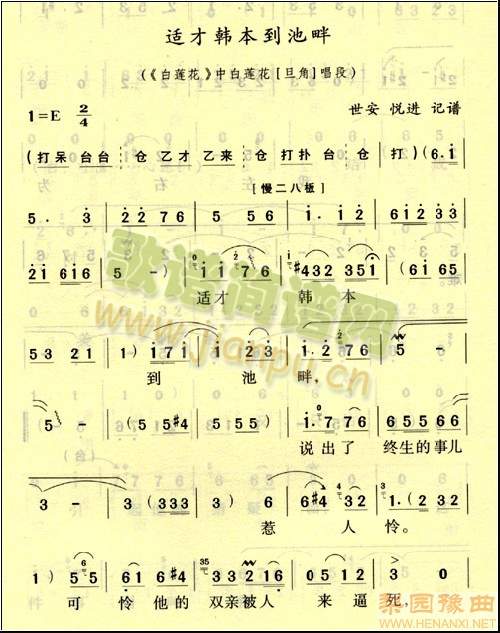 适才韩本到池畔
(《白莲花》中白莲花[旦角]唱段)
1=E 2/4
世安 悦进 记谱
(打呆台台 仓乙才乙来 仓打扑台仓 打)(6·1
[慢二八板]
5· 3 2276 5 56 1· 12 61233
2161 616 5 - ) 1 1 76 #4332 351 (61
适才 韩 本
53 21 1) 171 1 23 1·276 5 -
到 池 畔,
5 - (55#4 5 5) 1·276 65566
说出了 终生的事儿
3 - 3 (333 3) 6 6#4 32 1·(232
惹 人 怜。
1) 55 61 6#4 3323 0512 3 -
可 怜他的 双亲被人 来逼死,
歌谱简谱网
www.jianpu.cn
梨园豫曲
WWW.HENANXI.NET